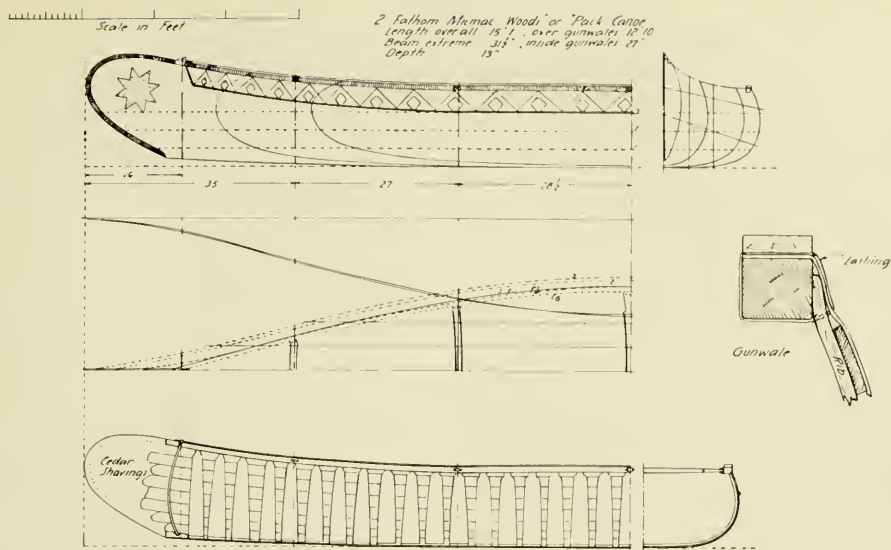 Scale in Feet
2 Fathom Micmac Woods or Pack Canoe
Length overall 15' 1", over gunwales 12' 10
Beam extreme 31½" inside gunwales 27"
Depth 13"
16
35
27
28½
Lashing
Gunwale
Rib
Cedar
Shavings